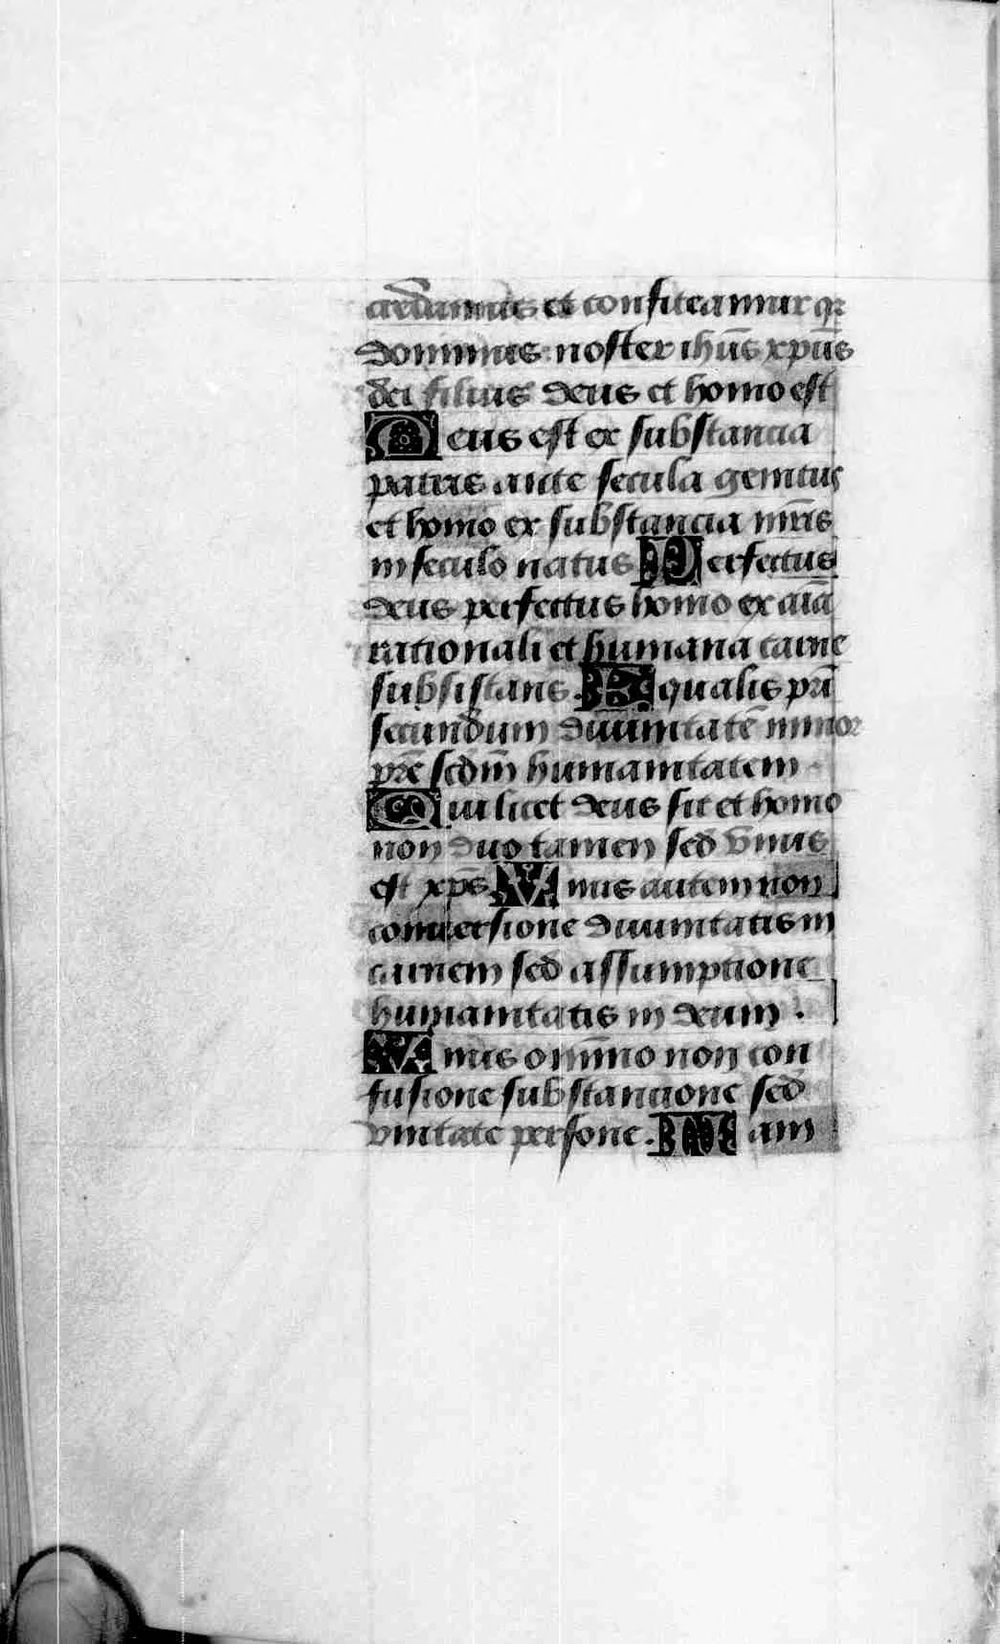 credamus et confiteamur qꝛ
dominus noster ihūs xpūs
dei filius deus et homo est
Deus est ex substancia
patris ante secula genitus
et homo ex substancia mr̄is
in seculo natus Perfectus
deus perfectus homo ex aīa
rationali et humana carne
subsistans. Equalis pr̄i
secundum diuinitatē minor
pr̄e scdm̄ humanitatem
Qui licet deus sit et homo
non duo tamen sed vnus
est xp̄s Vnus autem non
conuersione diuinitatis in
carnem sed assumptione
humanitatis in deum .
Vnus omnino non con
fusione substancione sed
vnitate persone. Nam